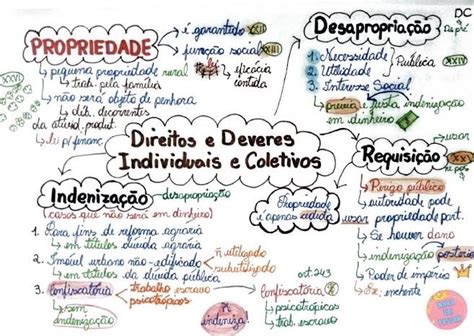 DC
PROPRIEDADE
é garantido XXII
função social XXIII
lei
eficácia contida
XXVI
pequena propriedade rural
trab. pela família
não será objeto de penhora
déb. decorrentes
da ativid. produt.
lei p/ financ.
Desapropriação
1. Necessidade
2. Utilidade
Pública
XXIV
3. Interesse Social
prévia e justa indenização
em dinheiro
Direitos e Deveres
Individuais e Coletivos
Requisição
XXV
Perigo público
autoridade pode
usar propriedade part.
Propriedade
é apenas cedida
Se houver dano
indenização posterior
Poder de império
Ex.: enchente
Indenização
desapropriação
(casos que não será em dinheiro)
1. Para fins de reforma agrária
em títulos dívida agrária
2. Imóvel urbano não-edificado
ñ utilizado
subutilizado
em títulos da dívida pública
3. confiscatória
trabalho escravo
psicotrópicos
sem
indenização
art. 243
confiscatória
psicotrópicas
trab. escravo
ñ
indeniza!